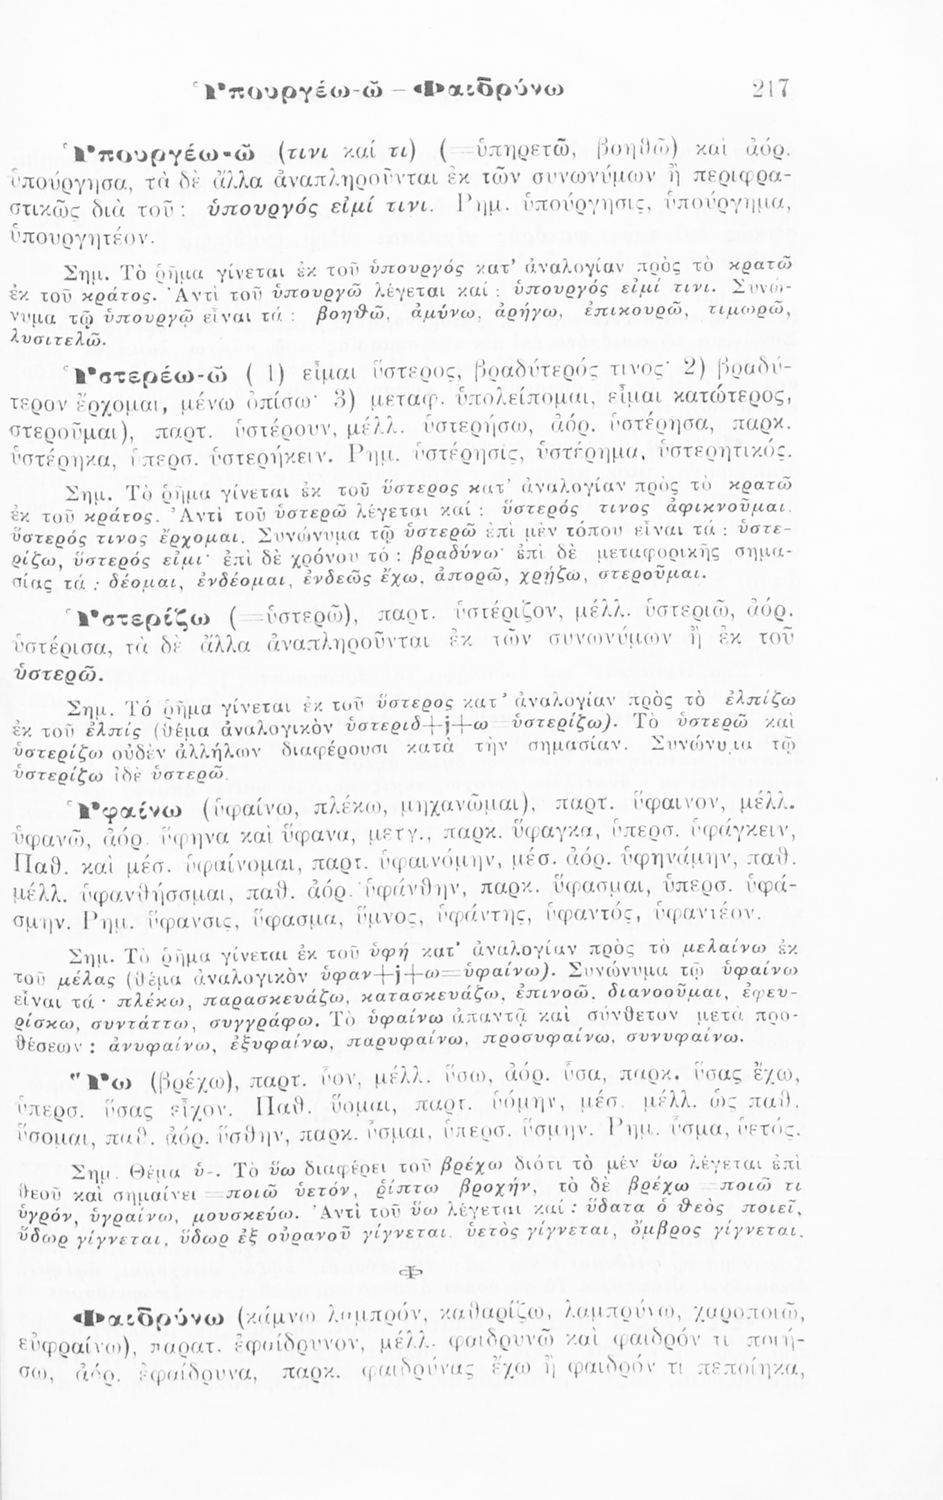 Ὑπουργέω-ῶ – Φαιδρύνω 217
Ὑπουργέω-ῶ (τινι καί τι) (=ὑπηρετῶ, βοηθῶ) καὶ ἀόρ.
ὑπούργησα, τὰ δὲ ἄλλα ἀναπληροῦνται ἐκ τῶν συνωνύμων ἢ περιφρα-
στικῶς διὰ τοῦ: ὑπουργός εἰμί τινι. Ρημ. ὑπούργησις, ὑπούργημα,
ὑπουργητέον.
Σημ. Τὸ ῥῆμα γίνεται ἐκ τοῦ ὑπουργός κατ’ ἀναλογίαν πρὸς τὸ κρατῶ
ἐκ τοῦ κράτος. Ἀντὶ τοῦ ὑπουργῶ λέγεται καί: ὑπουργός εἰμί τινι. Συνώ-
νυμα τῷ ὑπουργῶ εἶναι τά: βοηθῶ, ἀμύνω, ἀρήγω, ἐπικουρῶ, τιμωρῶ,
λυσιτελῶ.
Ὑστερέω-ῶ ( 1) εἶμαι ὕστερος, βραδύτερός τινος· 2) βραδύ-
τερον ἔρχομαι, μένω ὀπίσω· 3) μεταφ. ὑπολείπομαι, εἶμαι κατώτερος,
στεροῦμαι), παρτ. ὑστέρουν, μέλλ. ὑστερήσω, ἀόρ. ὑστέρησα, παρκ.
ὑστέρηκα, ὑπερσ. ὑστερήκειν. Ρημ. ὑστέρησις, ὑστέρημα, ὑστερητικός.
Σημ. Τὸ ῥῆμα γίνεται ἐκ τοῦ ὕστερος κατ’ ἀναλογίαν πρὸς τὸ κρατῶ
ἐκ τοῦ κράτος. Ἀντὶ τοῦ ὑστερῶ λέγεται καί: ὕστερός τινος ἀφικνοῦμαι,
ὕστερός τινος ἔρχομαι. Συνώνυμα τῷ ὑστερῶ ἐπὶ μὲν τόπου εἶναι τά: ὑστε-
ρίζω, ὕστερός εἰμι· ἐπὶ δὲ χρόνου τό: βραδύνω· ἐπὶ δὲ μεταφορικῆς σημα-
σίας τά: δέομαι, ἐνδέομαι, ἐνδεῶς ἔχω, ἀπορῶ, χρῄζω, στεροῦμαι.
Ὑστερίζω (=ὑστερῶ), παρτ. ὑστέριζον, μέλλ. ὑστεριῶ, ἀόρ.
ὑστέρισα, τὰ δὲ ἄλλα ἀναπληροῦνται ἐκ τῶν συνωνύμων ἢ ἐκ τοῦ
ὑστερῶ.
Σημ. Τό ῥῆμα γίνεται ἐκ τοῦ ὕστερος κατ’ ἀναλογίαν πρὸς τὸ ἐλπίζω
ἐκ τοῦ ἐλπίς (θέμα ἀναλογικὸν ὑστεριδ+j+ω=ὑστερίζω). Τὸ ὑστερῶ καὶ
ὑστερίζω οὐδὲν ἀλλήλων διαφέρουσι κατὰ τὴν σημασίαν. Συνώνυμα τῷ
ὑστερίζω ἰδὲ ὑστερῶ.
Ὑφαίνω (ὑφαίνω, πλέκω, μηχανῶμαι), παρτ. ὕφαινον, μέλλ.
ὑφανῶ, ἀόρ. ὕφηνα καὶ ὕφανα, μετγ., παρκ. ὕφαγκα, ὑπερσ. ὑφάγκειν,
Παθ. καὶ μέσ. ὑφαίνομαι, παρτ. ὑφαινόμην, μέσ. ἀόρ. ὑφηνάμην, παθ.
μέλλ. ὑφανθήσομαι, παθ. ἀόρ. ὑφάνθην, παρκ. ὕφασμαι, ὑπερσ. ὑφά-
σμην. Ρημ. ὕφανσις, ὕφασμα, ὕμνος, ὑφάντης, ὑφαντός, ὑφαντέον.
Σημ. Τὸ ῥῆμα γίνεται ἐκ τοῦ ὑφή κατ’ ἀναλογίαν πρὸς τὸ μελαίνω ἐκ
τοῦ μέλας (θέμα ἀναλογικὸν ὑφαν+j+ω=ὑφαίνω). Συνώνυμα τῷ ὑφαίνω
εἶναι τά· πλέκω, παρασκευάζω, κατασκευάζω, ἐπινοῶ, διανοοῦμαι, ἐφευ-
ρίσκω, συντάττω, συγγράφω. Τὸ ὑφαίνω ἀπαντᾷ καὶ σύνθετον μετὰ προ-
θέσεων: ἀνυφαίνω, ἐξυφαίνω, παρυφαίνω, προσυφαίνω, συνυφαίνω.
Ὕω (βρέχω), παρτ. ὗον, μέλλ. ὕσω, ἀόρ. ὗσα, παρκ. ὕσας ἔχω,
ὑπερσ. ὕσας εἶχον. Παθ. ὕομαι, παρτ. ὑόμην, μέσ. μέλλ. ὡς παθ.
ὕσομαι, παθ. ἀόρ. ὕσθην, παρκ. ὗσμαι, ὑπερσ. ὕσμην. Ρημ. ὗσμα, ὑετός.
Σημ. Θέμα ὑ-. Τὸ ὕω διαφέρει τοῦ βρέχω διότι τὸ μέν ὕω λέγεται ἐπὶ
θεοῦ καὶ σημαίνει =ποιῶ ὑετόν, ῥίπτω βροχήν, τὸ δὲ βρέχω =ποιῶ τι
ὑγρόν, ὑγραίνω, μουσκεύω. Ἀντὶ τοῦ ὕω λέγεται καί: ὕδατα ὁ θεὸς ποιεῖ,
ὕδωρ γίγνεται, ὕδωρ ἐξ οὐρανοῦ γίγνεται, ὑετὸς γίγνεται, ὄμβρος γίγνεται.
Φ
Φαιδρύνω (κάμνω λαμπρόν, καθαρίζω, λαμπρύνω, χαροποιῶ,
εὐφραίνω), παρατ. ἐφαίδρυνον, μέλλ. φαιδρυνῶ καὶ φαιδρόν τι ποιή-
σω, ἀόρ. ἐφαίδρυνα, παρκ. φαιδρύνας ἔχω ἢ φαιδρόν τι πεποίηκα,